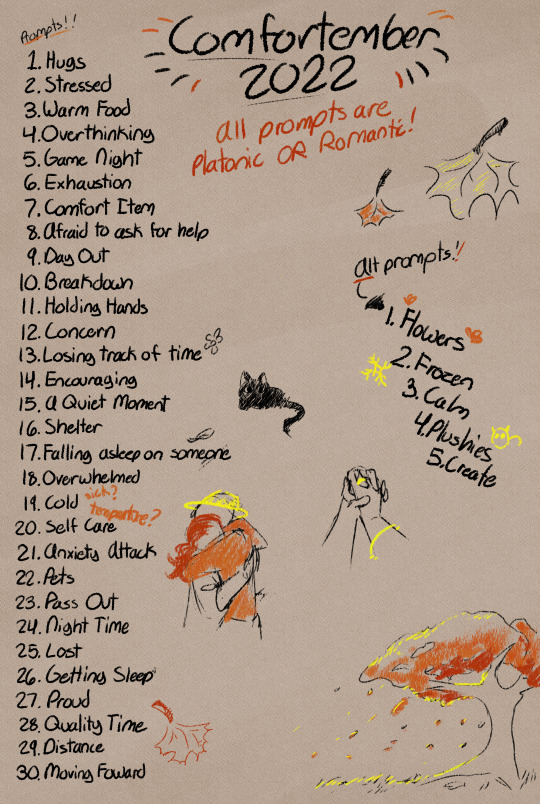 Prompts!!
Comfortember
2022
all prompts are
Platonic OR Romantic!
1. Hugs
2. Stressed
3. Warm Food
4. Overthinking
5. Game Night
6. Exhaustion
7. Comfort Item
8. Afraid to ask for help
9. Day Out
10. Breakdown
11. Holding Hands
12. Concern
13. Losing track of time
14. Encouraging
15. A Quiet Moment
16. Shelter
17. Falling asleep on someone
18. Overwhelmed
19. Cold sick?
temperture?
20. Self Care
21. Anxiety Attack
22. Pets
23. Pass Out
24. Night Time
25. Lost
26. Getting Sleep
27. Proud
28. Quality Time
29. Distance
30. Moving Foward
alt prompts!!
1. Flowers
2. Frozen
3. Calm
4. Plushies
5. Create